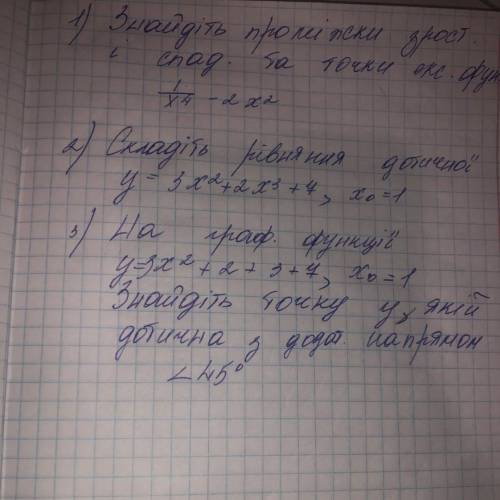 1) Знайдіть проміжки зрост.
і спад. та точки екс. фун
1/x4 - 2x²
2) Складіть рівняння дотичної
y = 3x² + 2x³ + 7, x₀ = 1
3) На граф. функції
y = 3x² + 2 + 3 + 7, x₀ = 1
Знайдіть точку у якій
дотична з додат. напрямом
∠45°